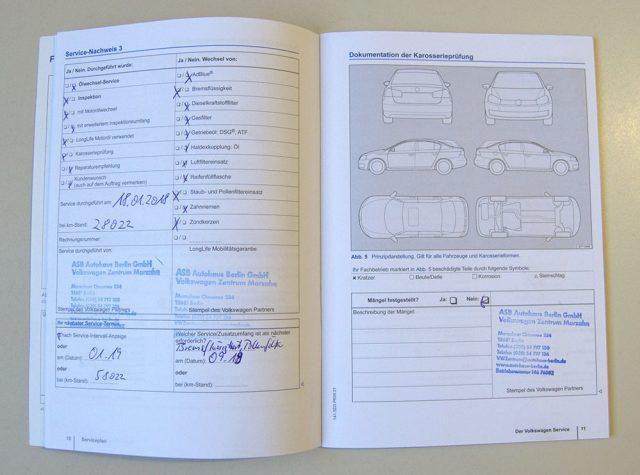 Service-Nachweis 3
Ja / Nein. Durchgeführt wurde:
Ölwechsel-Service
Inspektion
mit Motorölwechsel
mit erweitertem Inspektionsumfang
LongLife Motoröl verwendet
Karosserieprüfung
Reparaturempfehlung
Kundenwunsch
(auch auf dem Auftrag vermerken)
Service durchgeführt am: 18.01.2018
bei km-Stand: 28022
Rechnungsnummer:
Service durchgeführt von:
ASB Autohaus Berlin GmbH
Volkswagen Zentrum Marzahn
Stempel des Volkswagen Partners
Ihr nächster Service-Termin:
nach Service-Intervall-Anzeige
oder
am (Datum): 01.19
oder
bei (km-Stand): 58022
10 Serviceplan
Ja / Nein. Wechsel von:
AdBlue®
Bremsflüssigkeit
Dieselkraftstofffilter
Gasfilter
Getriebeöl: DSG®, ATF
Haldexkupplung: Öl
Luftfiltereinsatz
Reifenfüllflasche
Staub- und Pollenfiltereinsatz
Zahnriemen
Zündkerzen
LongLife Mobilitätsgarantie
ASB Autohaus Berlin GmbH
Volkswagen Zentrum Marzahn
Stempel des Volkswagen Partners
Welcher Service/Zusatzumfang ist als nächster
erforderlich?
am (Datum):
oder
bei (km-Stand):
Dokumentation der Karosserieprüfung
Abb. 5 Prinzipdarstellung. Gilt für alle Fahrzeuge und Karosserieformen.
Ihr Fachbetrieb markiert in Abb. 5 beschädigte Teile durch folgende Symbole:
Kratzer Beule/Delle Korrosion Steinschlag
Mängel festgestellt? Ja: Nein:
Beschreibung der Mängel:
ASB Autohaus Berlin GmbH
Volkswagen Zentrum Marzahn
Stempel des Volkswagen Partners
Der Volkswagen Service 11